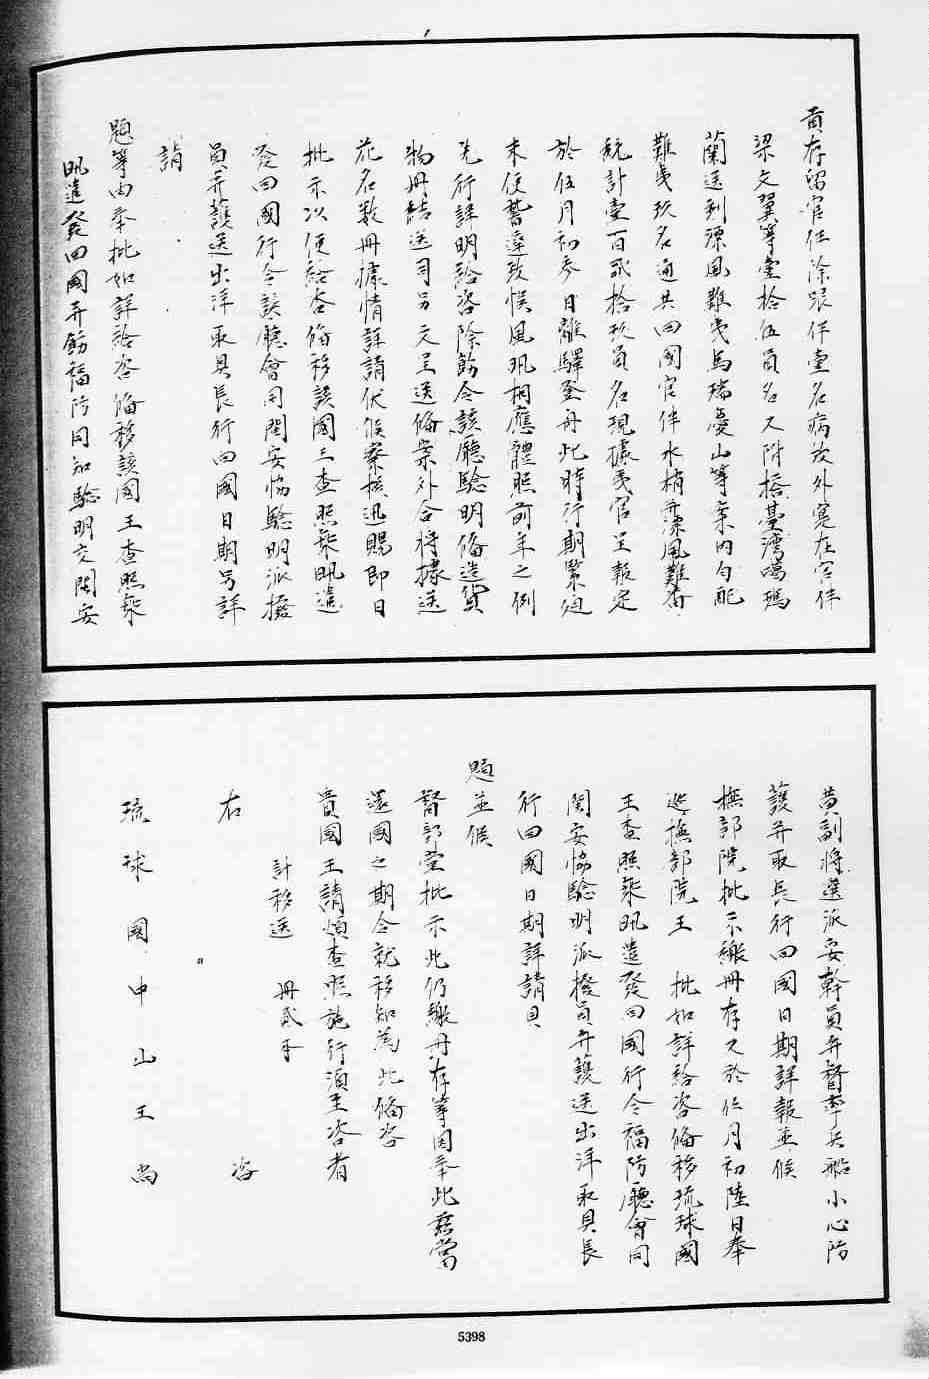 貢存留官伍除跟伴壹名病故外寔在官伴
梁文翼等壹拾伍員名又附搭臺灣噶瑪
蘭送到漂風難夷馬瑞慶山等案內勻配
難夷玖名通共回國官伴水梢并漂風難番
統計壹百貳拾玖員名現據夷官呈報定
於伍月初參日離驛登舟此時行期緊迫
未便暫違致悞風汛相應體照前年之例
先行詳明給咨除飭令該廳驗明俻造貨
物冊結送司另文呈送俻案外合將據送
花名数冊據情詳請伏候察核迅賜即日
批示以便給咨俻移該國王查照乘汛遣
發回國行令該廳會同閩安協驗明派撥
員弁護送出洋取具長行回國日期另詳
請
題等由奉批如詳給咨俻移該國王查照乘
汛遣發回國并飭福防同知驗明交閩安
黃副將遴派妥幹員弁督率兵船小心防
護并取長行回國日期詳報並候
撫部院批示繳冊存又於伍月初陸日奉
巡撫部院王 批如詳給咨俻移琉球國
王查照乘汛遣發回國行令福防廳會同
閩安協驗明派撥員弁護送出洋取具長
行回國日期詳請具
題並候
督部堂批示此仍繳冊存等因奉此茲當
還國之期合就移知為此俻咨
貴國王請煩查照施行須至咨者
計移送 冊貳本
右 咨
琉球國中山王尚
5398